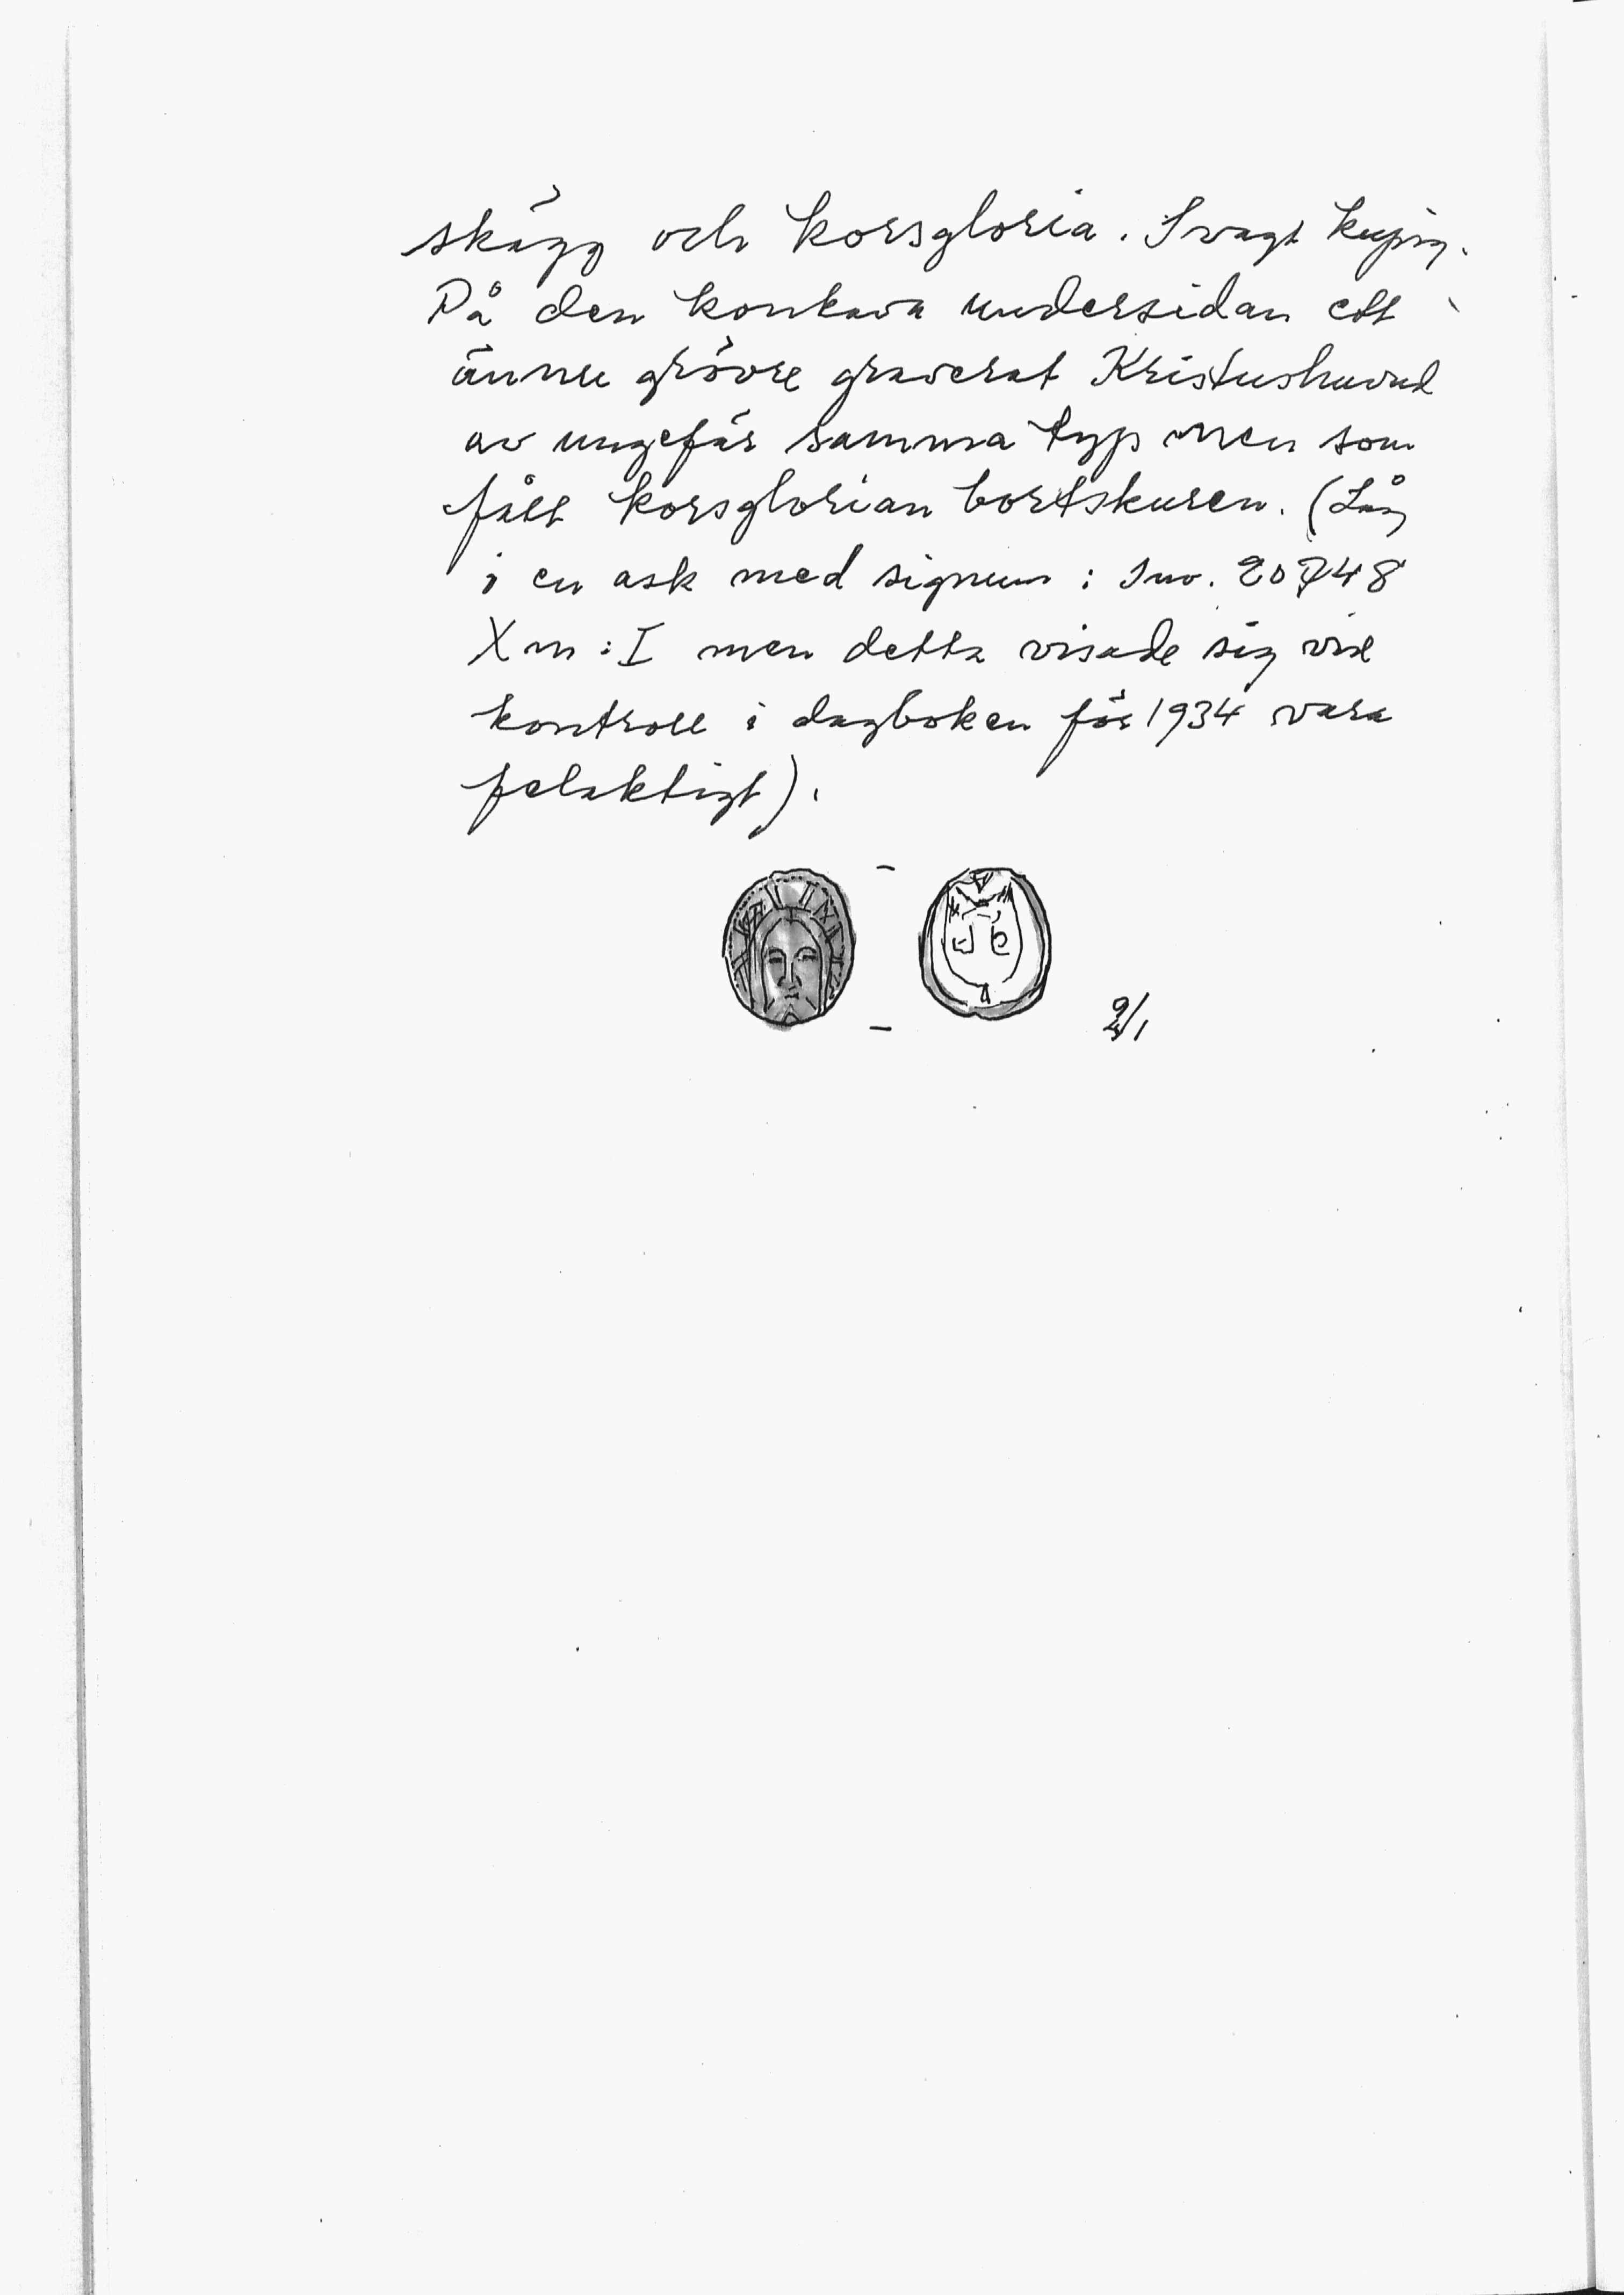 skägg och korsgloria. Svagt kupig.
På den konkava undersidan ett
ännu grövre graverat Kristushuvud
av ungefär samma typ men som
fått korsglorian bortskuren. (Låg
i en ask med signum: Inv. 20748
Xm:I men detta visade sig vid
kontroll i dagboken för 1934 vara
felaktigt).
2/1